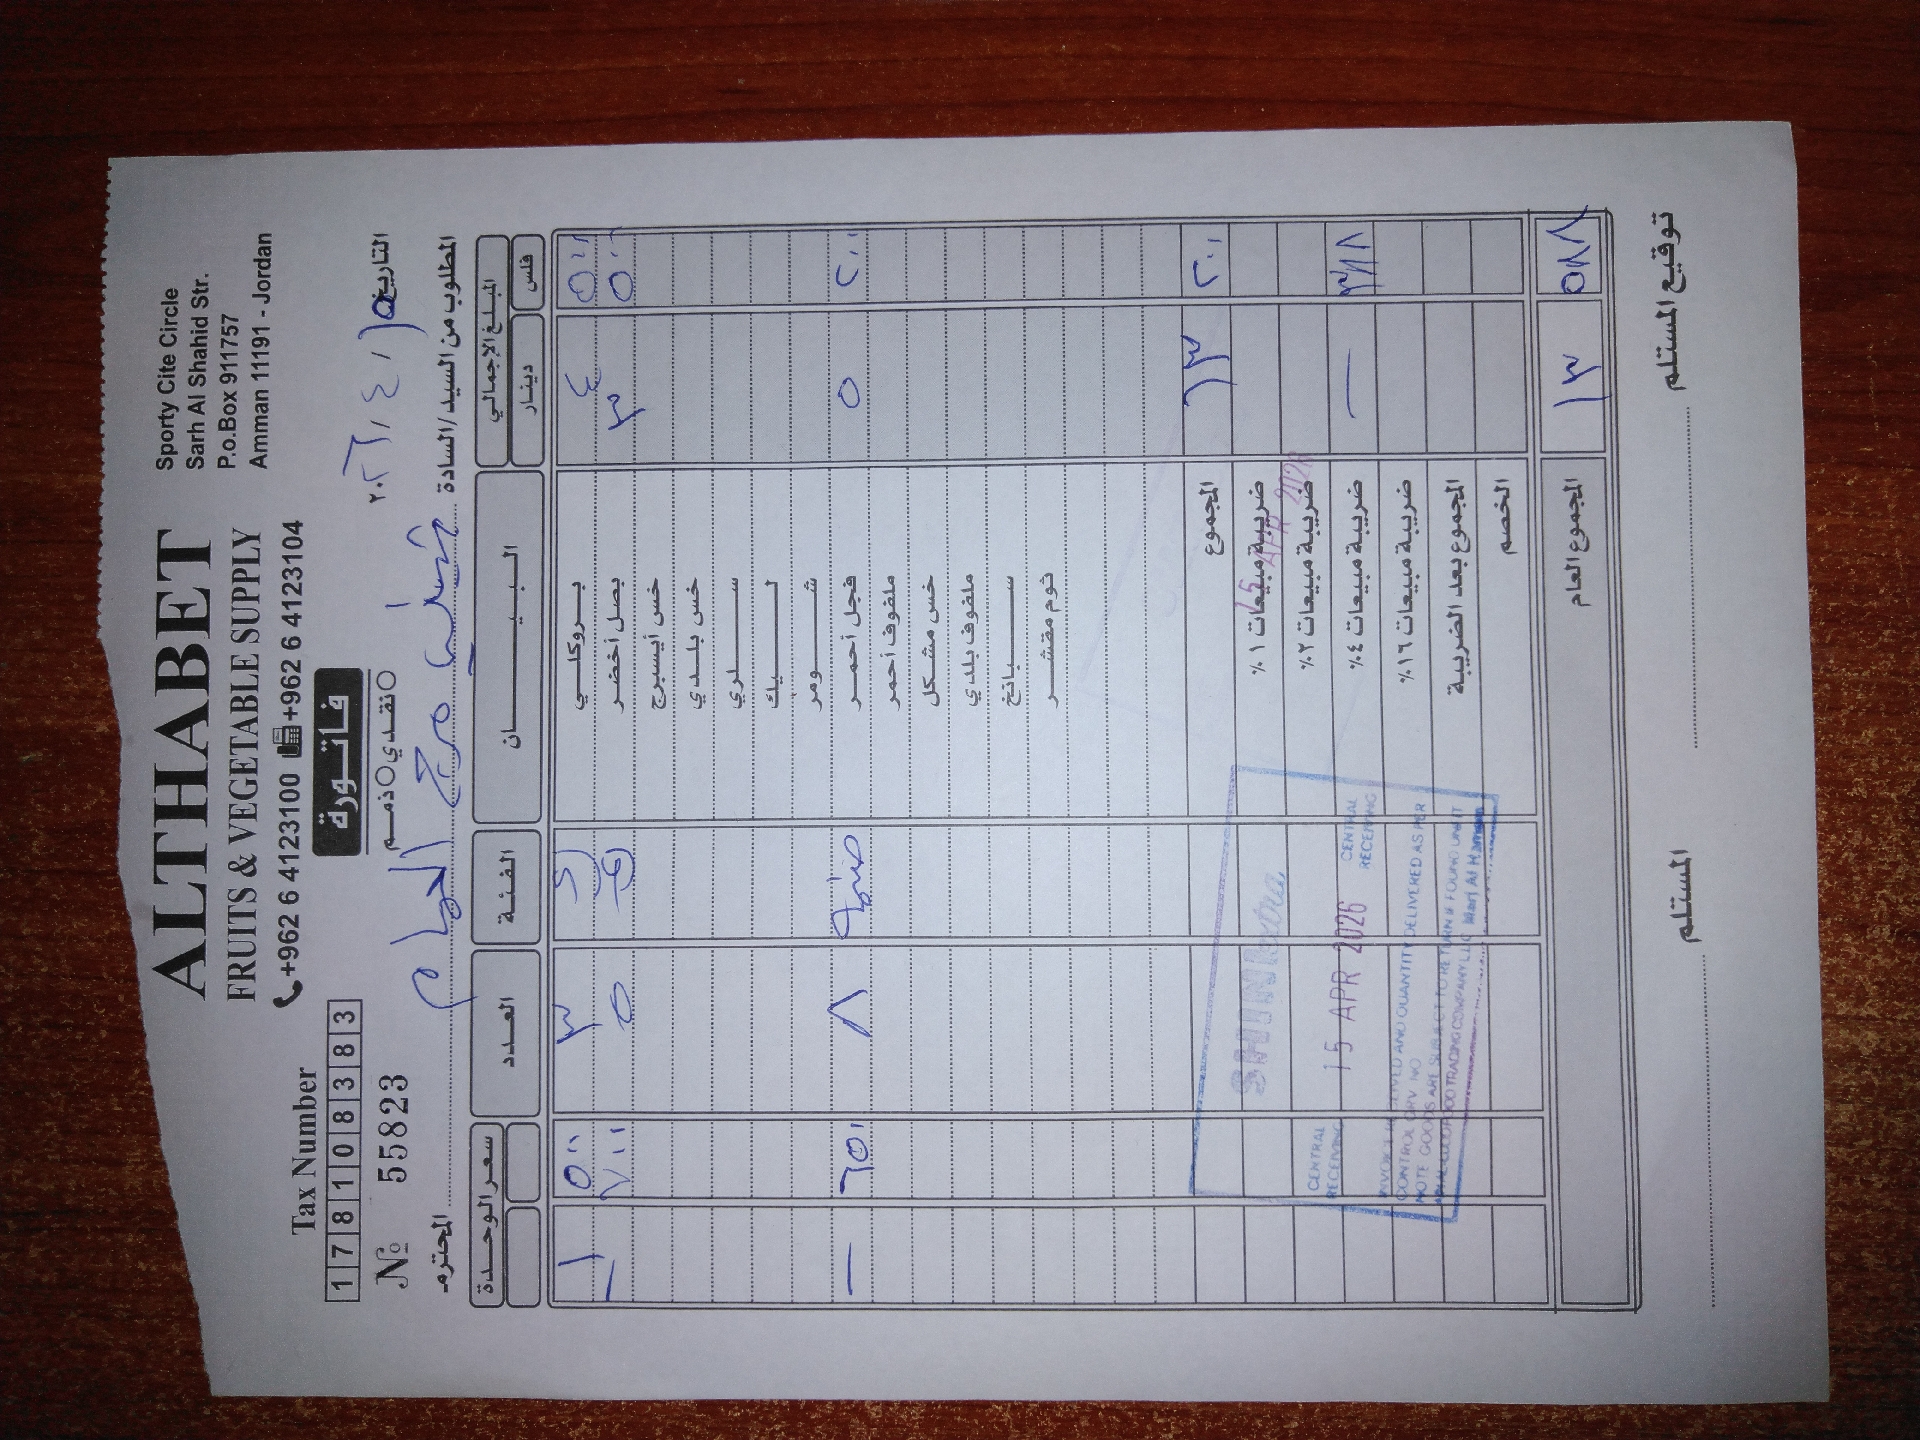 ALTHABET
FRUITS & VEGETABLE SUPPLY
+962 6 4123100 +962 6 4123104
Sporty Cite Circle
Sarh Al Shahid Str.
P.o.Box 911757
Amman 11191 - Jordan
Tax Number
178108383
№ 55823
فاتورة
نقدي ذمم
التاريخ ١٥/٤/٢٠٢٦
المطلوب من السيد/السادة مرج الحمام المحترم
المبلغ الإجمالي البيان الفئة العدد سعر الوحدة
فلس دينار
بروكلي ٥٠٠ ٤ ٣ ٥٠٠ ١
بصل أخضر ٥٠٠ ٣ ٥ ٧٠٠ —
خس أيسبرج
خس بلدي
سلري
ليك
شومر
فجل أحمر ٢٠٠ ٥ ضمة ٨ ٦٥٠ —
ملفوف أحمر
خس مشكل
ملفوف بلدي
سبانخ
ثوم مقشر
المجموع ٢٠٠ ١٣
ضريبة مبيعات ١٪
ضريبة مبيعات ٢٪
ضريبة مبيعات ٤٪ ٣٨٨ —
ضريبة مبيعات ١٦٪
المجموع بعد الضريبة
الخصم
المجموع العام ٥٨٨ ١٣
15 APR 2026
CENTRAL RECEIVING
15 APR 2026
CENTRAL RECEIVING
RECEIVED AND QUANTITY DELIVERED AS PER
CONTROL GRV NO
NOTE GOODS ARE SUBJECT TO RETURN IF FOUND UNFIT
TRADING COMPANY LLC Marj Al Hamam
المستلم
توقيع المستلم